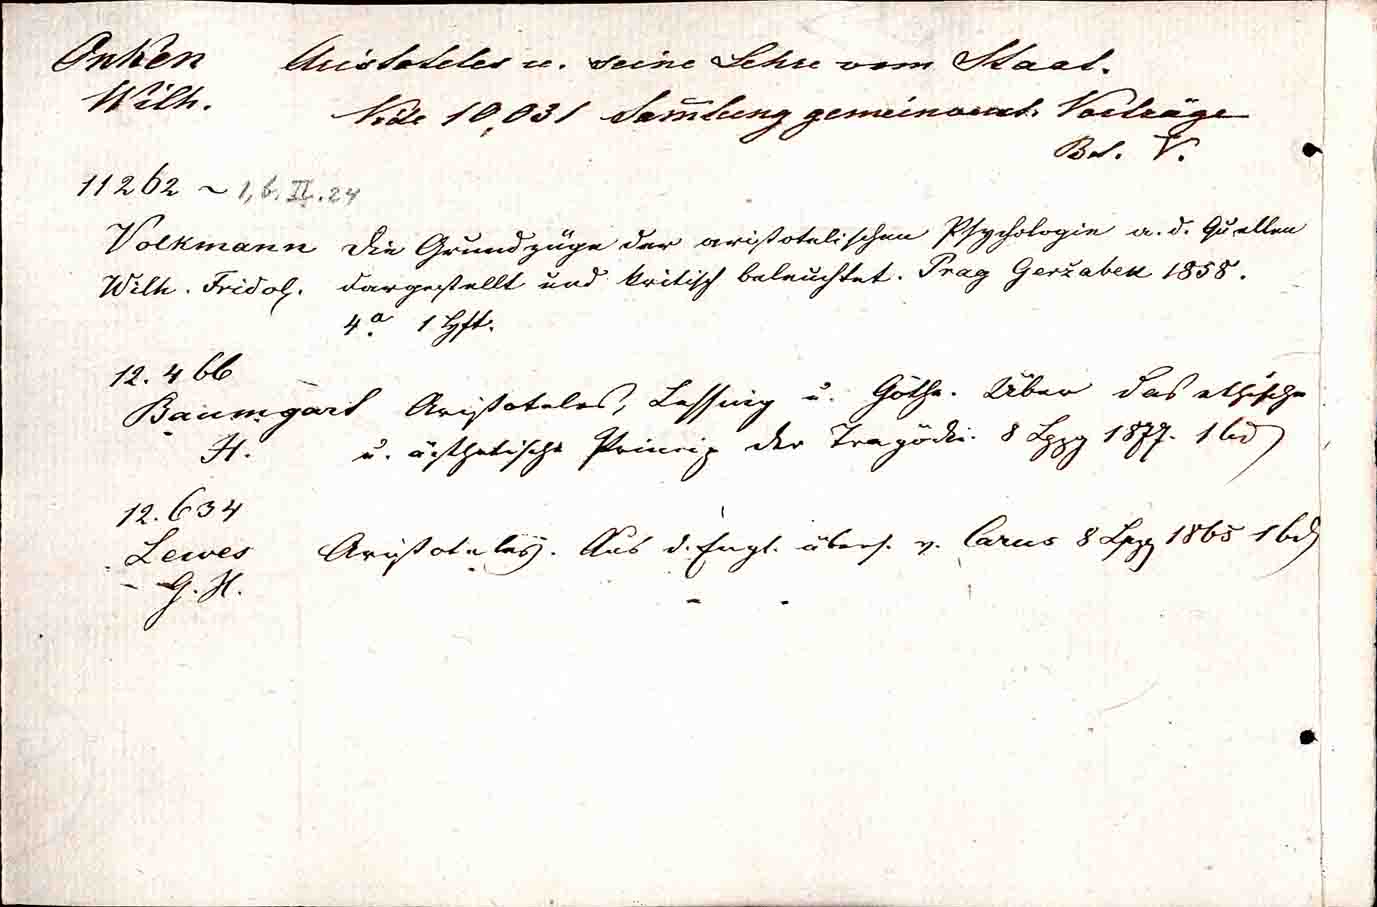 Onken Aristoteles u. seine Lehre vom Staat.
Wilh. Vide 10,031 Sam̄lung gemeinverst. Vorträge
Bd. V.
11262 ~ 1, b. II. 24
Volkmann Die Grundzüge der aristotelischen Psychologie a. d. Quellen
Wilh. Fridol. dargestellt und kritisch beleuchtet. Prag Geržabek 1858.
4° 1 Hft.
12.466
Baumgart Aristoteles, Lessing u. Göthe. Über das ethische
H. u. ästhetische Prinzip der Tragödie. 8 Lpzg 1877. 1 bd
12.634
Lewes Aristoteles. Aus d. Engl. übers. v. Carus 8 Lpzg 1865 1 bd
G. H.